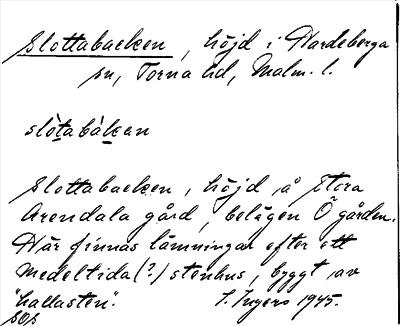 Slottabacken, höjd i Hardeberga
sn, Torna hd, Malm. l.
slòtabàkan
Slottabacken, höjd å Stora
Arendala gård, belägen Ö gården.
Här finnas lämningar efter ett
medeltida (?) stenhus, byggt av
"hallasten". I. Ingers 1945.